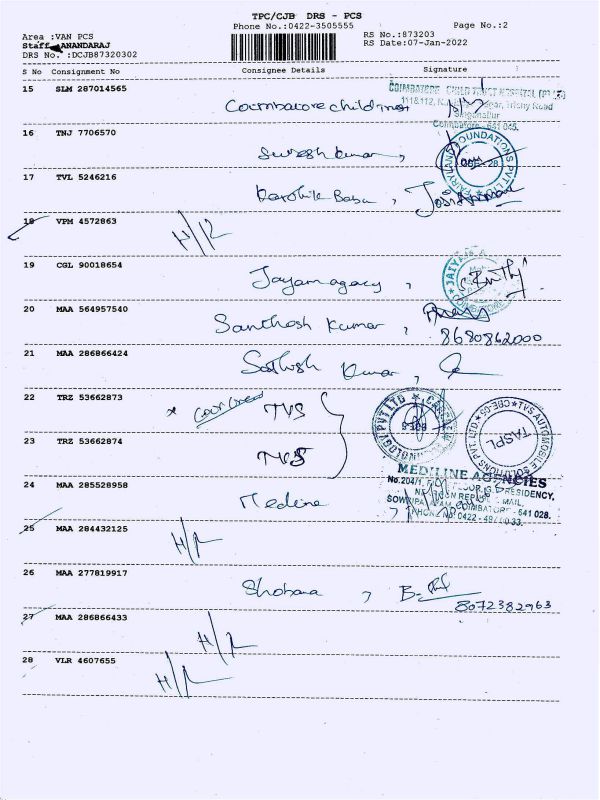 TPC/CJB DRS - PCS
Phone No.:0422-3505555
Page No.:2
Area :VAN PCS
RS No.:873203
Staff ANANDARAJ
RS Date:07-Jan-2022
DRS No. :DCJB87320302
S No Consignment No Consignee Details Signature
15 SLM 287014565
COIMBATORE CHILD TRUST HOSPITAL
Coimbatore child trust
Trichy Road
Singanallur
Coimbatore - 641 045.
16 TNJ 7706570
Suresh Kumar,
FOUNDATIONS PVT LTD
17 TVL 5246216
Karthik Babu,
18 VPM 4572863
H/R
19 CGL 90018654
20 MAA 564957540
Santhosh Kumar,
8680862000
21 MAA 286866424
Sathish Kumar,
22 TRZ 53662873
TVS
TVS AUTOMOBILE SOLUTIONS PVT. LTD. CBE-05
TASPL
23 TRZ 53662874
TVS
24 MAA 285528958
Medline
MEDILINE AGENCIES
PRESIDENCY,
COIMBATORE - 641 028.
25 MAA 284432125
H/R
26 MAA 277819917
Shobana,
8072382963
27 MAA 286866433
H/R
28 VLR 4607655
H/R